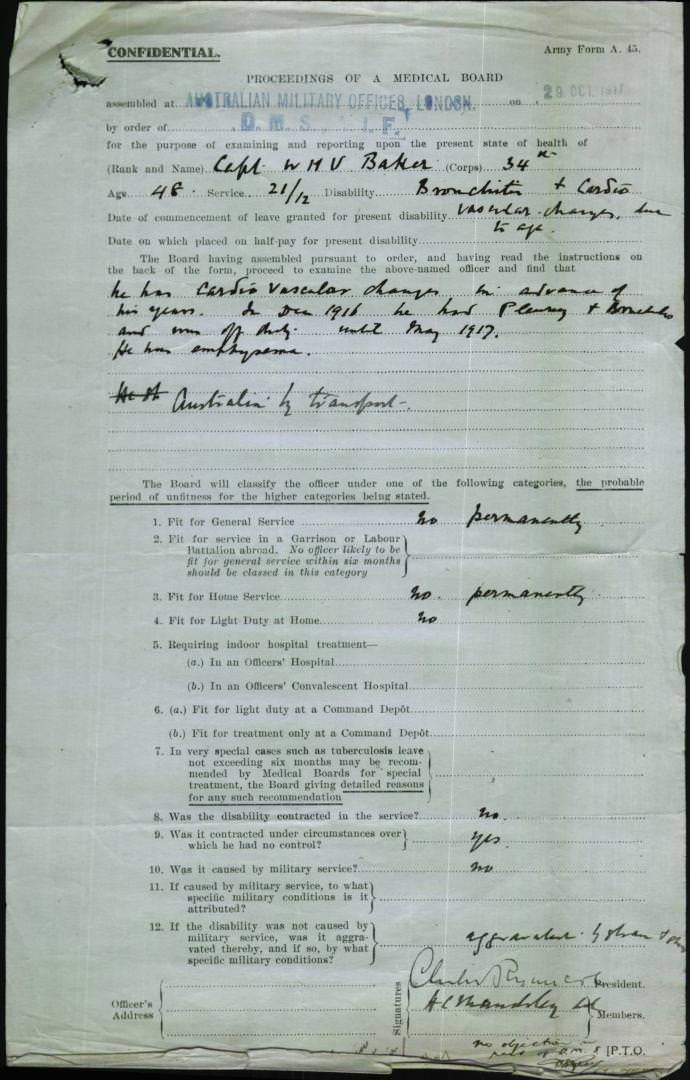 CONFIDENTIAL.
Army Form A. 45.
PROCEEDINGS OF A MEDICAL BOARD
assembled at AUSTRALIAN MILITARY OFFICES, LONDON. on 29 OCT 1917
by order of D. M. S., I. F.
for the purpose of examining and reporting upon the present state of health of
(Rank and Name) Capt W H V Baker (Corps) 34th
Age 48. Service 21/12 Disability Bronchitis + Cardio
Date of commencement of leave granted for present disability Vascular changes, due
to age.
Date on which placed on half-pay for present disability
The Board having assembled pursuant to order, and having read the instructions on
the back of the form, proceed to examine the above-named officer and find that
he has Cardio Vascular changes in advance of
his years. In Dec 1916 he had Pleurisy + Bronchitis
and was off duty until May 1917.
He has emphysema.
Australia by transport.
The Board will classify the officer under one of the following categories, the probable
period of unfitness for the higher categories being stated.
1. Fit for General Service no permanently
2. Fit for service in a Garrison or Labour
Battalion abroad. No officer likely to be
fit for general service within six months
should be classed in this category
3. Fit for Home Service no. permanently
4. Fit for Light Duty at Home no
5. Requiring indoor hospital treatment—
(a.) In an Officers' Hospital
(b.) In an Officers' Convalescent Hospital
6. (a.) Fit for light duty at a Command Depôt
(b.) Fit for treatment only at a Command Depôt
7. In very special cases such as tuberculosis leave
not exceeding six months may be recom-
mended by Medical Boards for special
treatment, the Board giving detailed reasons
for any such recommendation
8. Was the disability contracted in the service? no.
9. Was it contracted under circumstances over
which he had no control? yes
10. Was it caused by military service? no
11. If caused by military service, to what
specific military conditions is it
attributed?
12. If the disability was not caused by
military service, was it aggra-
vated thereby, and if so, by what
specific military conditions?
aggravated by strain +
Officer's
Address
Signatures
President.
Members.
no objection
[P.T.O.